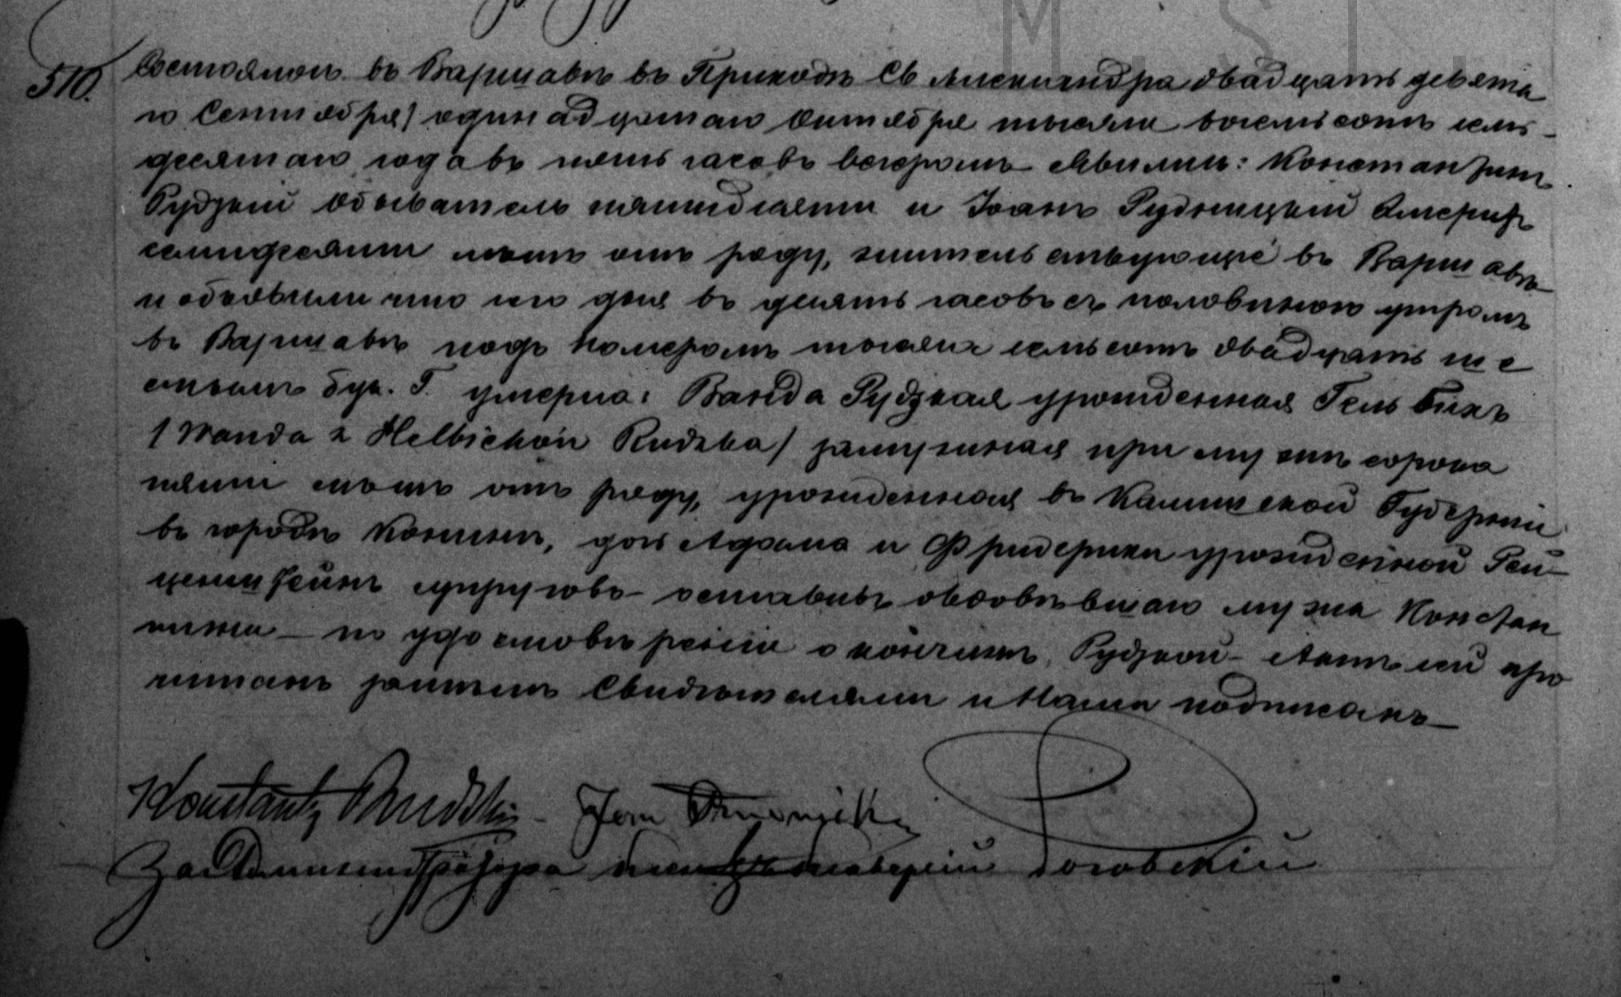 M. S.
510. Состоялось въ Варшавѣ въ Приходѣ Св Александра двадцать девята
го Сентября / одинадцатаго Октября тысяча восемьсотъ семь-
десятаго года въ пять часовъ вечеромъ Явились: Константинъ
Рудзкій Обыватель пятидесяти и Іоанъ Рудницкій Емеритъ
семидесяти лѣтъ отъ роду, жительствующіе въ Варшавѣ
и объявили что сего дня въ десять часовъ съ половиною утромъ
въ Варшавѣ подъ Номеромъ тысяча семьсотъ двадцать ше
стымъ бук. Г. умерла: Ванда Рудзкая урожденная Гельбихъ
/ Wanda z Helbichów Rudzka / замужняя при мужѣ сорока
пяти лѣтъ отъ роду, урожденная въ Калишской Губерніи
въ городѣ Конинѣ, дочь Адама и Фридерики урожденной Рей-
ценштейнъ супруговъ оставивъ овдовѣвшаго мужа Констан
тина — по удостовѣреніи о кончинѣ Рудзкой — Актъ сей про
читанъ затѣмъ Свидѣтелями и Нами подписанъ —
Konstanty Rudzki - Jan
За Администратора Роговскій